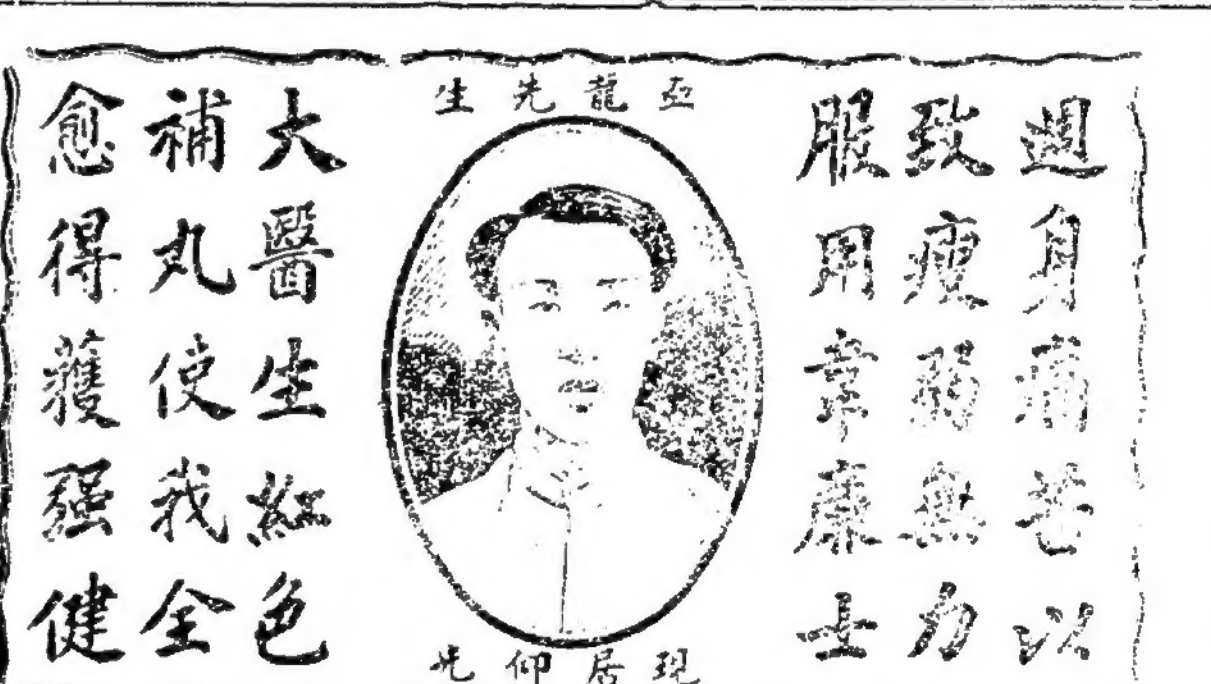 週身痛苦以
致瘦弱無力
服用韋廉士
亞龍先生
現居仰光
大醫生紅色
補丸使我全
愈得獲强健